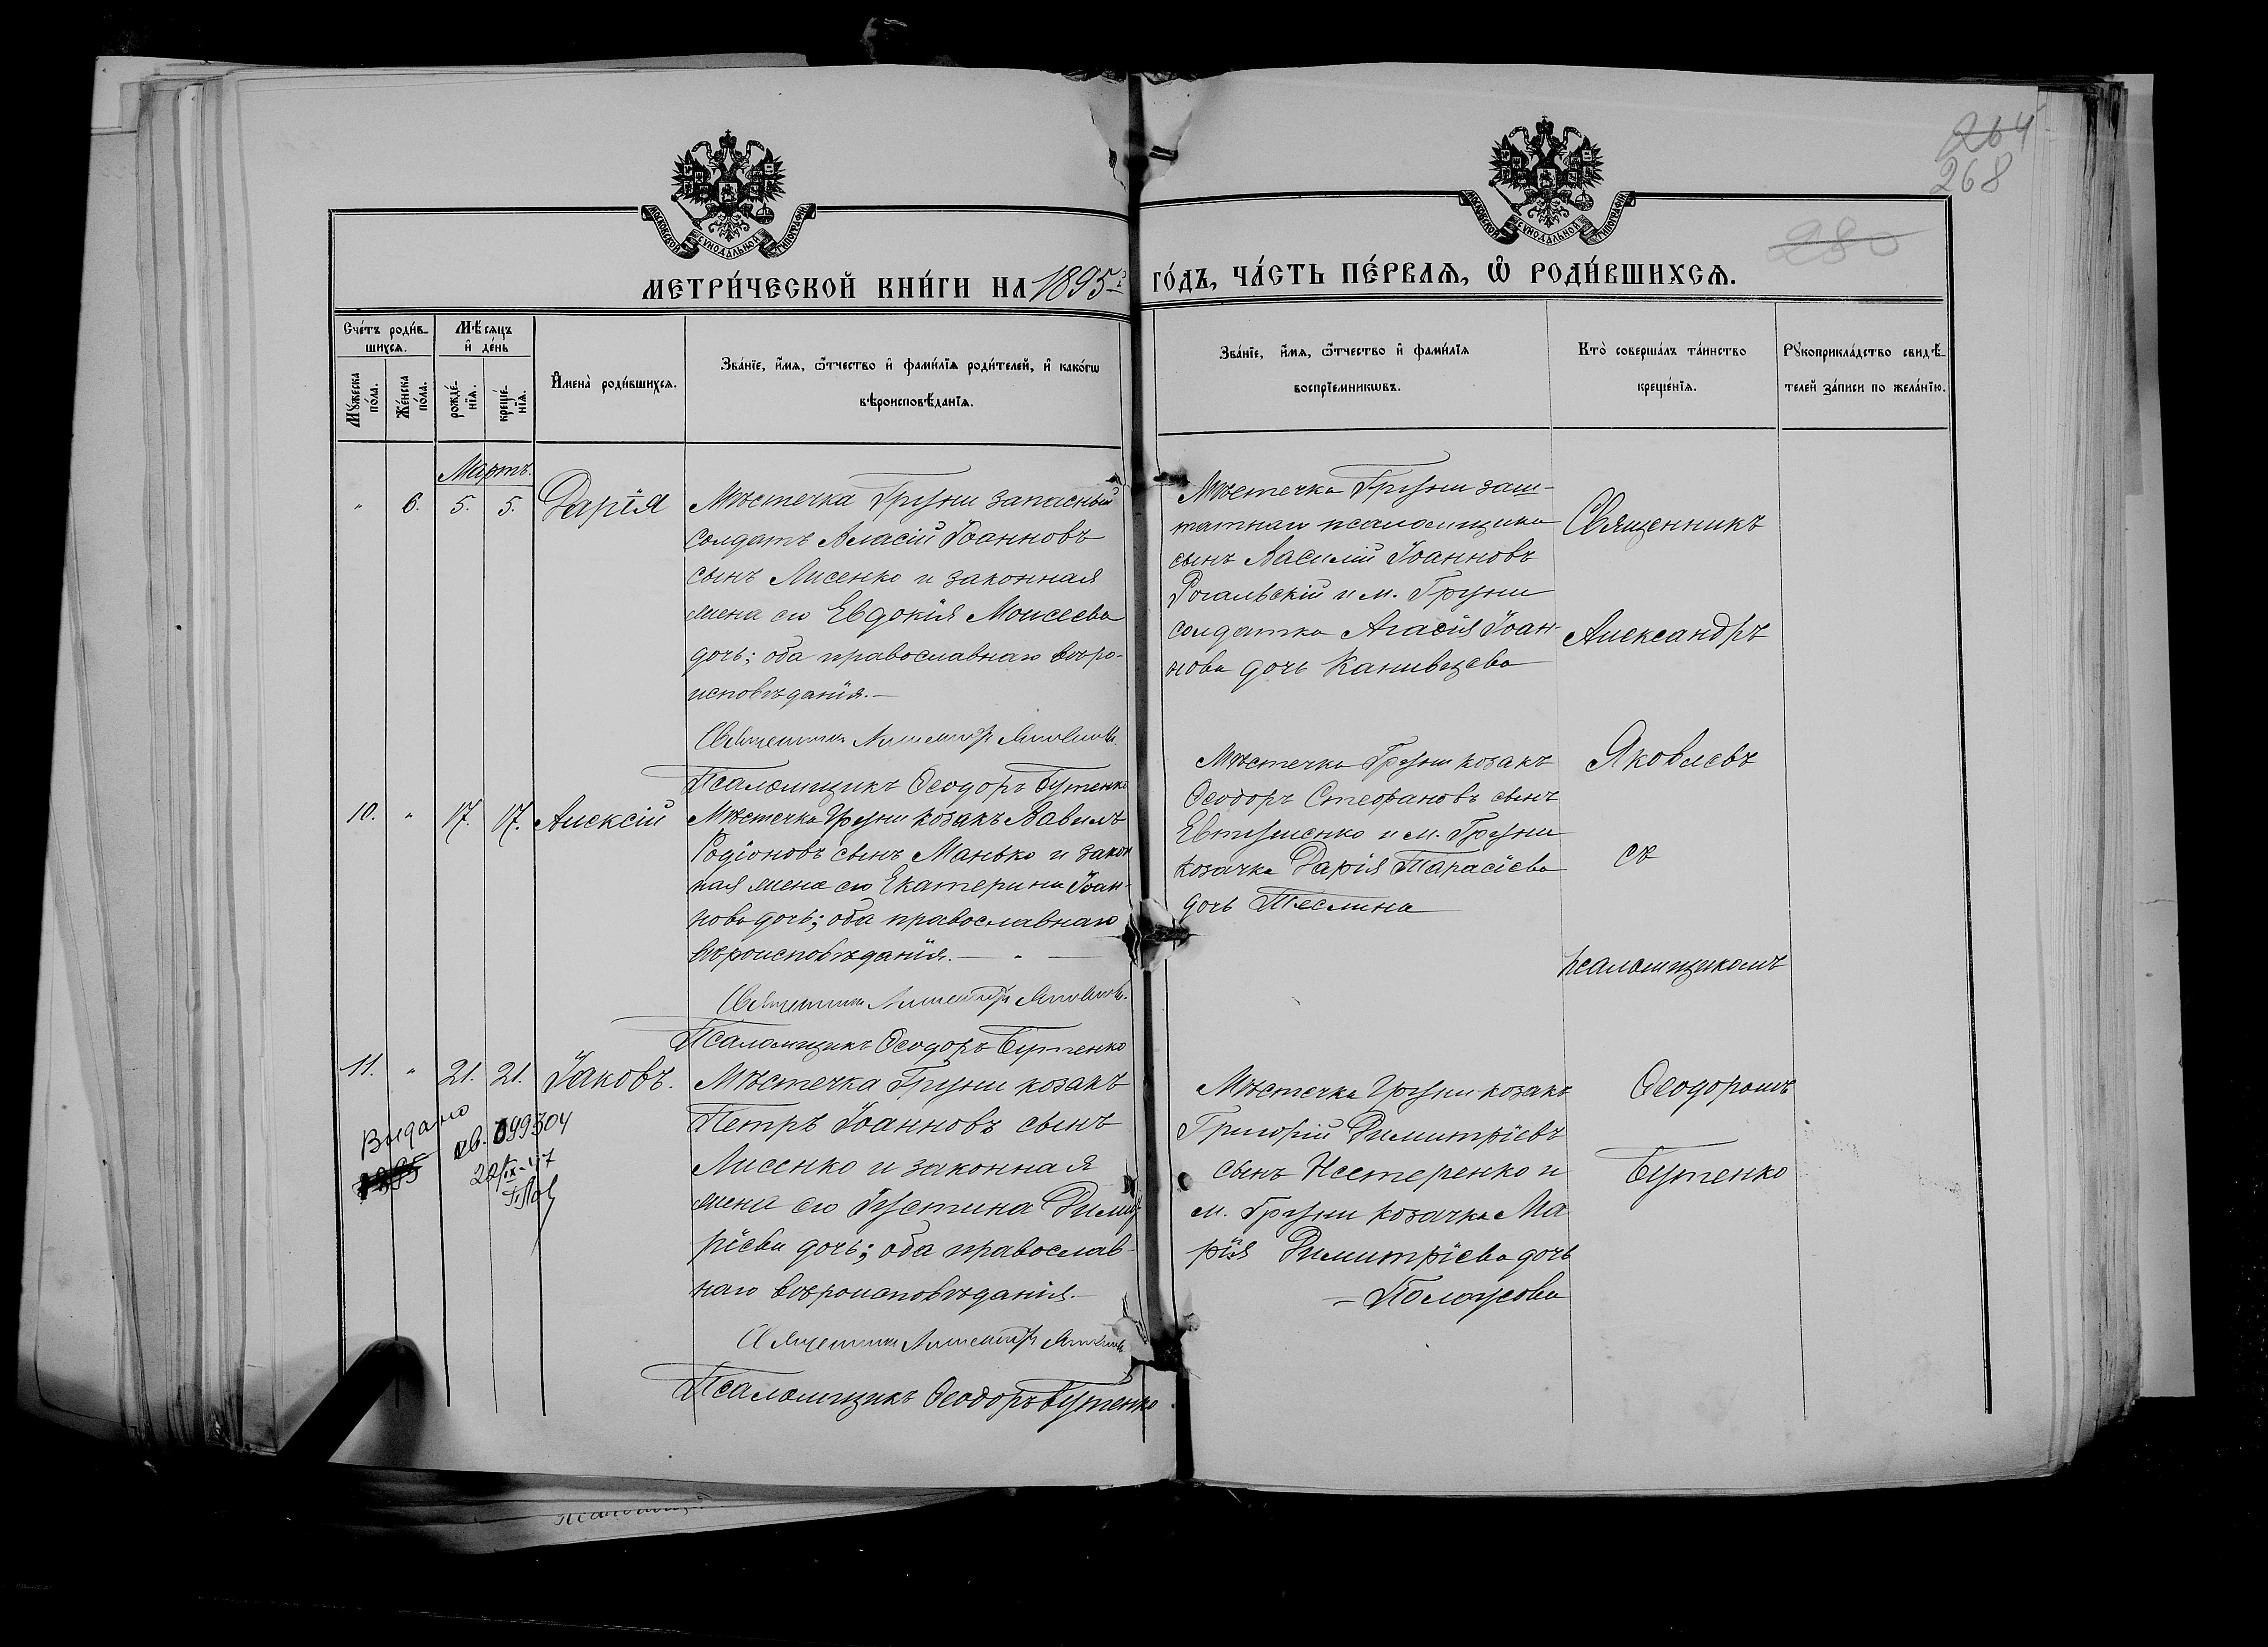 264
268
280
МОСКОВСКОЙ СѴНОДАЛЬНОЙ ТИПОГРАФІИ
МОСКОВСКОЙ СѴНОДАЛЬНОЙ ТИПОГРАФІИ
МЕТРИ́ЧЕСКОЙ КНИ́ГИ НА 1895й ГО́ДЪ, ЧА́СТЬ ПЕ́РВАЯ, Ѡ РОДИ́ВШИХСЯ.
Сче́тъ роди́в-
шихся.
Мѣ́сяцъ
и҆ де́нь
Мꙋ́жеска
по́ла.
Же́нска
по́ла.
рожде́-
нїя.
креще́-
нїя.
И҆мена̀ роди́вшихся.
Зва́нїе, и҆́мя, ѻ҆́тчество и҆ фами́лїя роди́телей, и҆ како́гѡ
вѣроисповѣ́данїя.
Зва́нїе, и҆́мя, ѻ҆́тчество и҆ фами́лїя
воспрїе́мникѡвъ.
Кто̀ соверша́лъ та́инство
креще́нїя.
Рꙋкоприкла́дство свидѣ́-
телей за́писи по жела́нїю.
Мартъ.
" 6. 5. 5. Дарія
Мѣстечка Груни запасный
солдатъ Власій Іоанновъ
сынъ Лисенко и законная
жена его Евдокія Моисеева
дочь; оба православнаго вѣро-
исповѣданія.—
Священникъ Александръ Яковлевъ.
Псаломщикъ Ѳеодоръ Бутенко
Мѣстечка Груни заш-
татнаго псаломщика
сынъ Василій Іоанновъ
Рогальскій и м. Груни
солдатка Агафія Іоан-
нова дочь Канивцева
10. " 17. 17. Алексій
Мѣстечка Груни козакъ Вавилъ
Родіоновъ сынъ Манько и закон
ная жена его Екатерина Іоан-
нова дочь; оба православнаго
вѣроисповѣданія. — " —
Священникъ Александръ Яковлевъ.
Псаломщикъ Ѳеодоръ Бутенко
Мѣстечка Груни козакъ
Ѳеодоръ Стефановъ сынъ
Евтушенко и м. Груни
козачка Дарія Тарасіева
дочь Теслина
11. " 21. 21. Іаковъ.
Мѣстечка Груни козакъ
Петръ Іоанновъ сынъ
Лисенко и законная
жена его Іустина Димит
ріева дочь; оба православ-
наго вѣроисповѣданія.—
Священникъ Александръ Яковлевъ
Псаломщикъ Ѳеодоръ Бутенко
Мѣстечка Груни козакъ
Григорій Димитріевъ
сынъ Нестеренко и
м. Груни козачка Ма
рія Димитріева дочь
Священникъ
Александръ
Яковлевъ
съ
псаломщикомъ
Ѳеодоромъ
Бутенко
Выдано